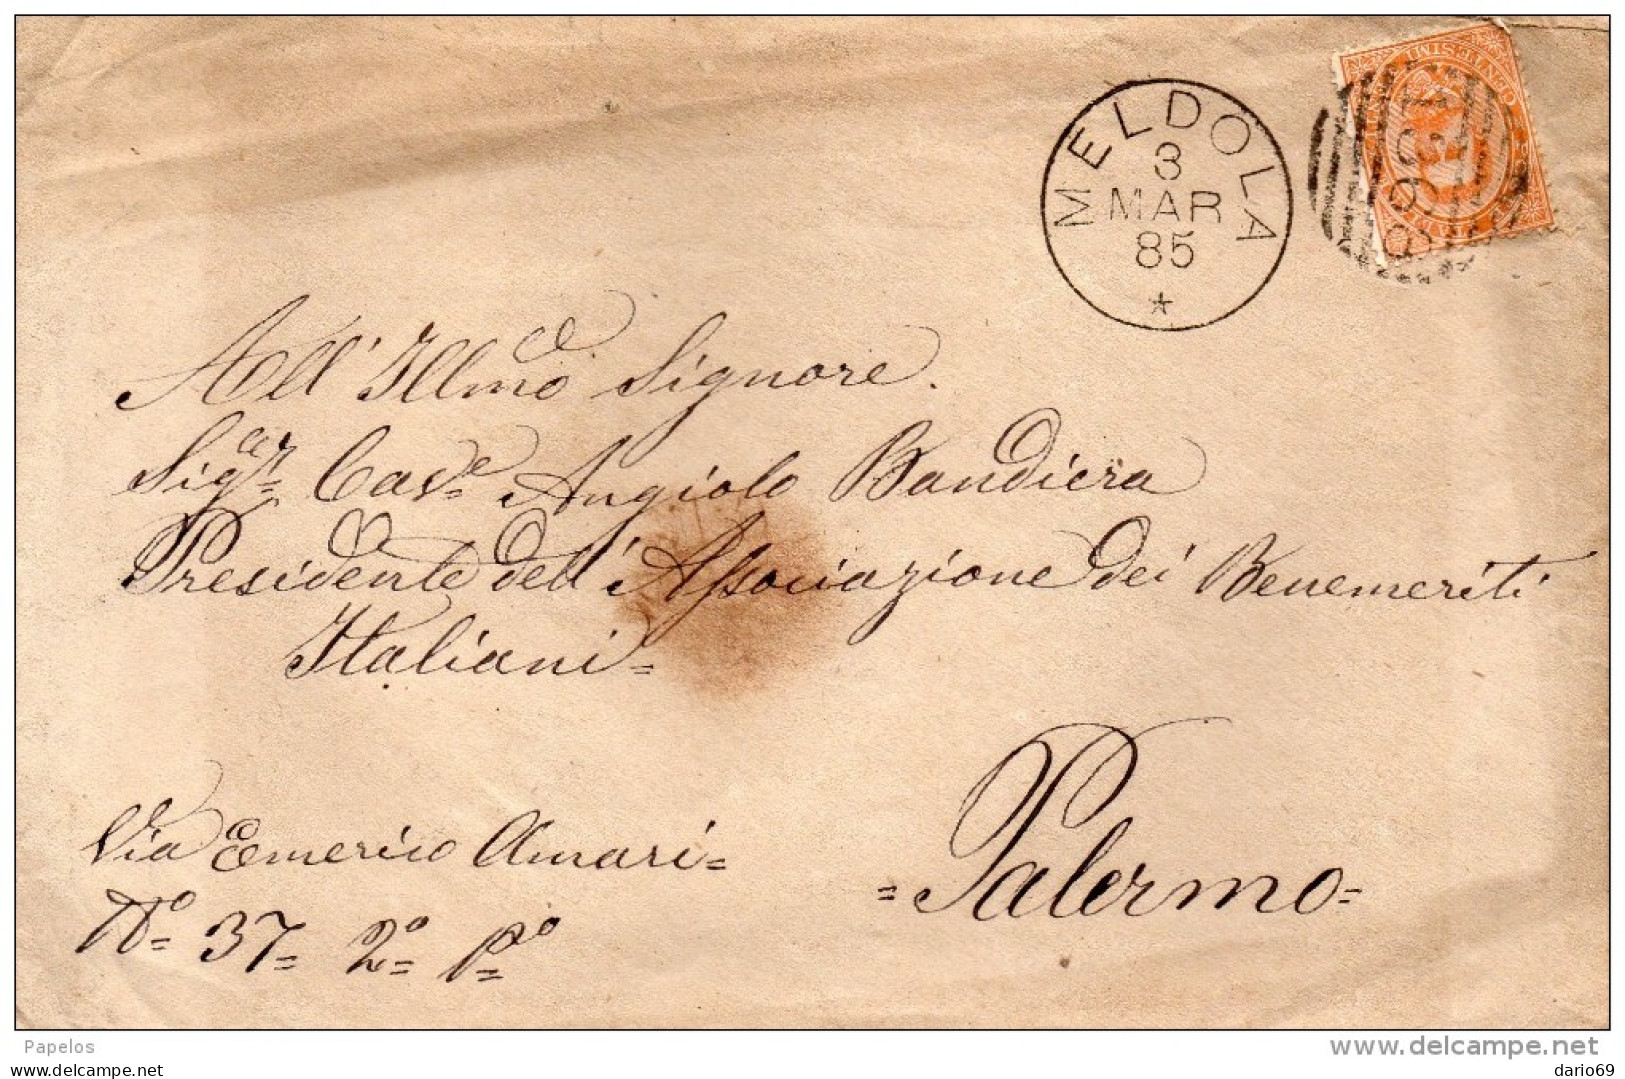 MELDOLA
3
MAR
85
All' Illmo Signore.
Sigr Cave Angiolo Bandiera
Presidente dell' Associazione dei Benemeriti
Italiani =
Via Emerico Amari =
No = 37 = 2o = Po =
= Palermo =
Papelos
www.delcampe.net
dario69